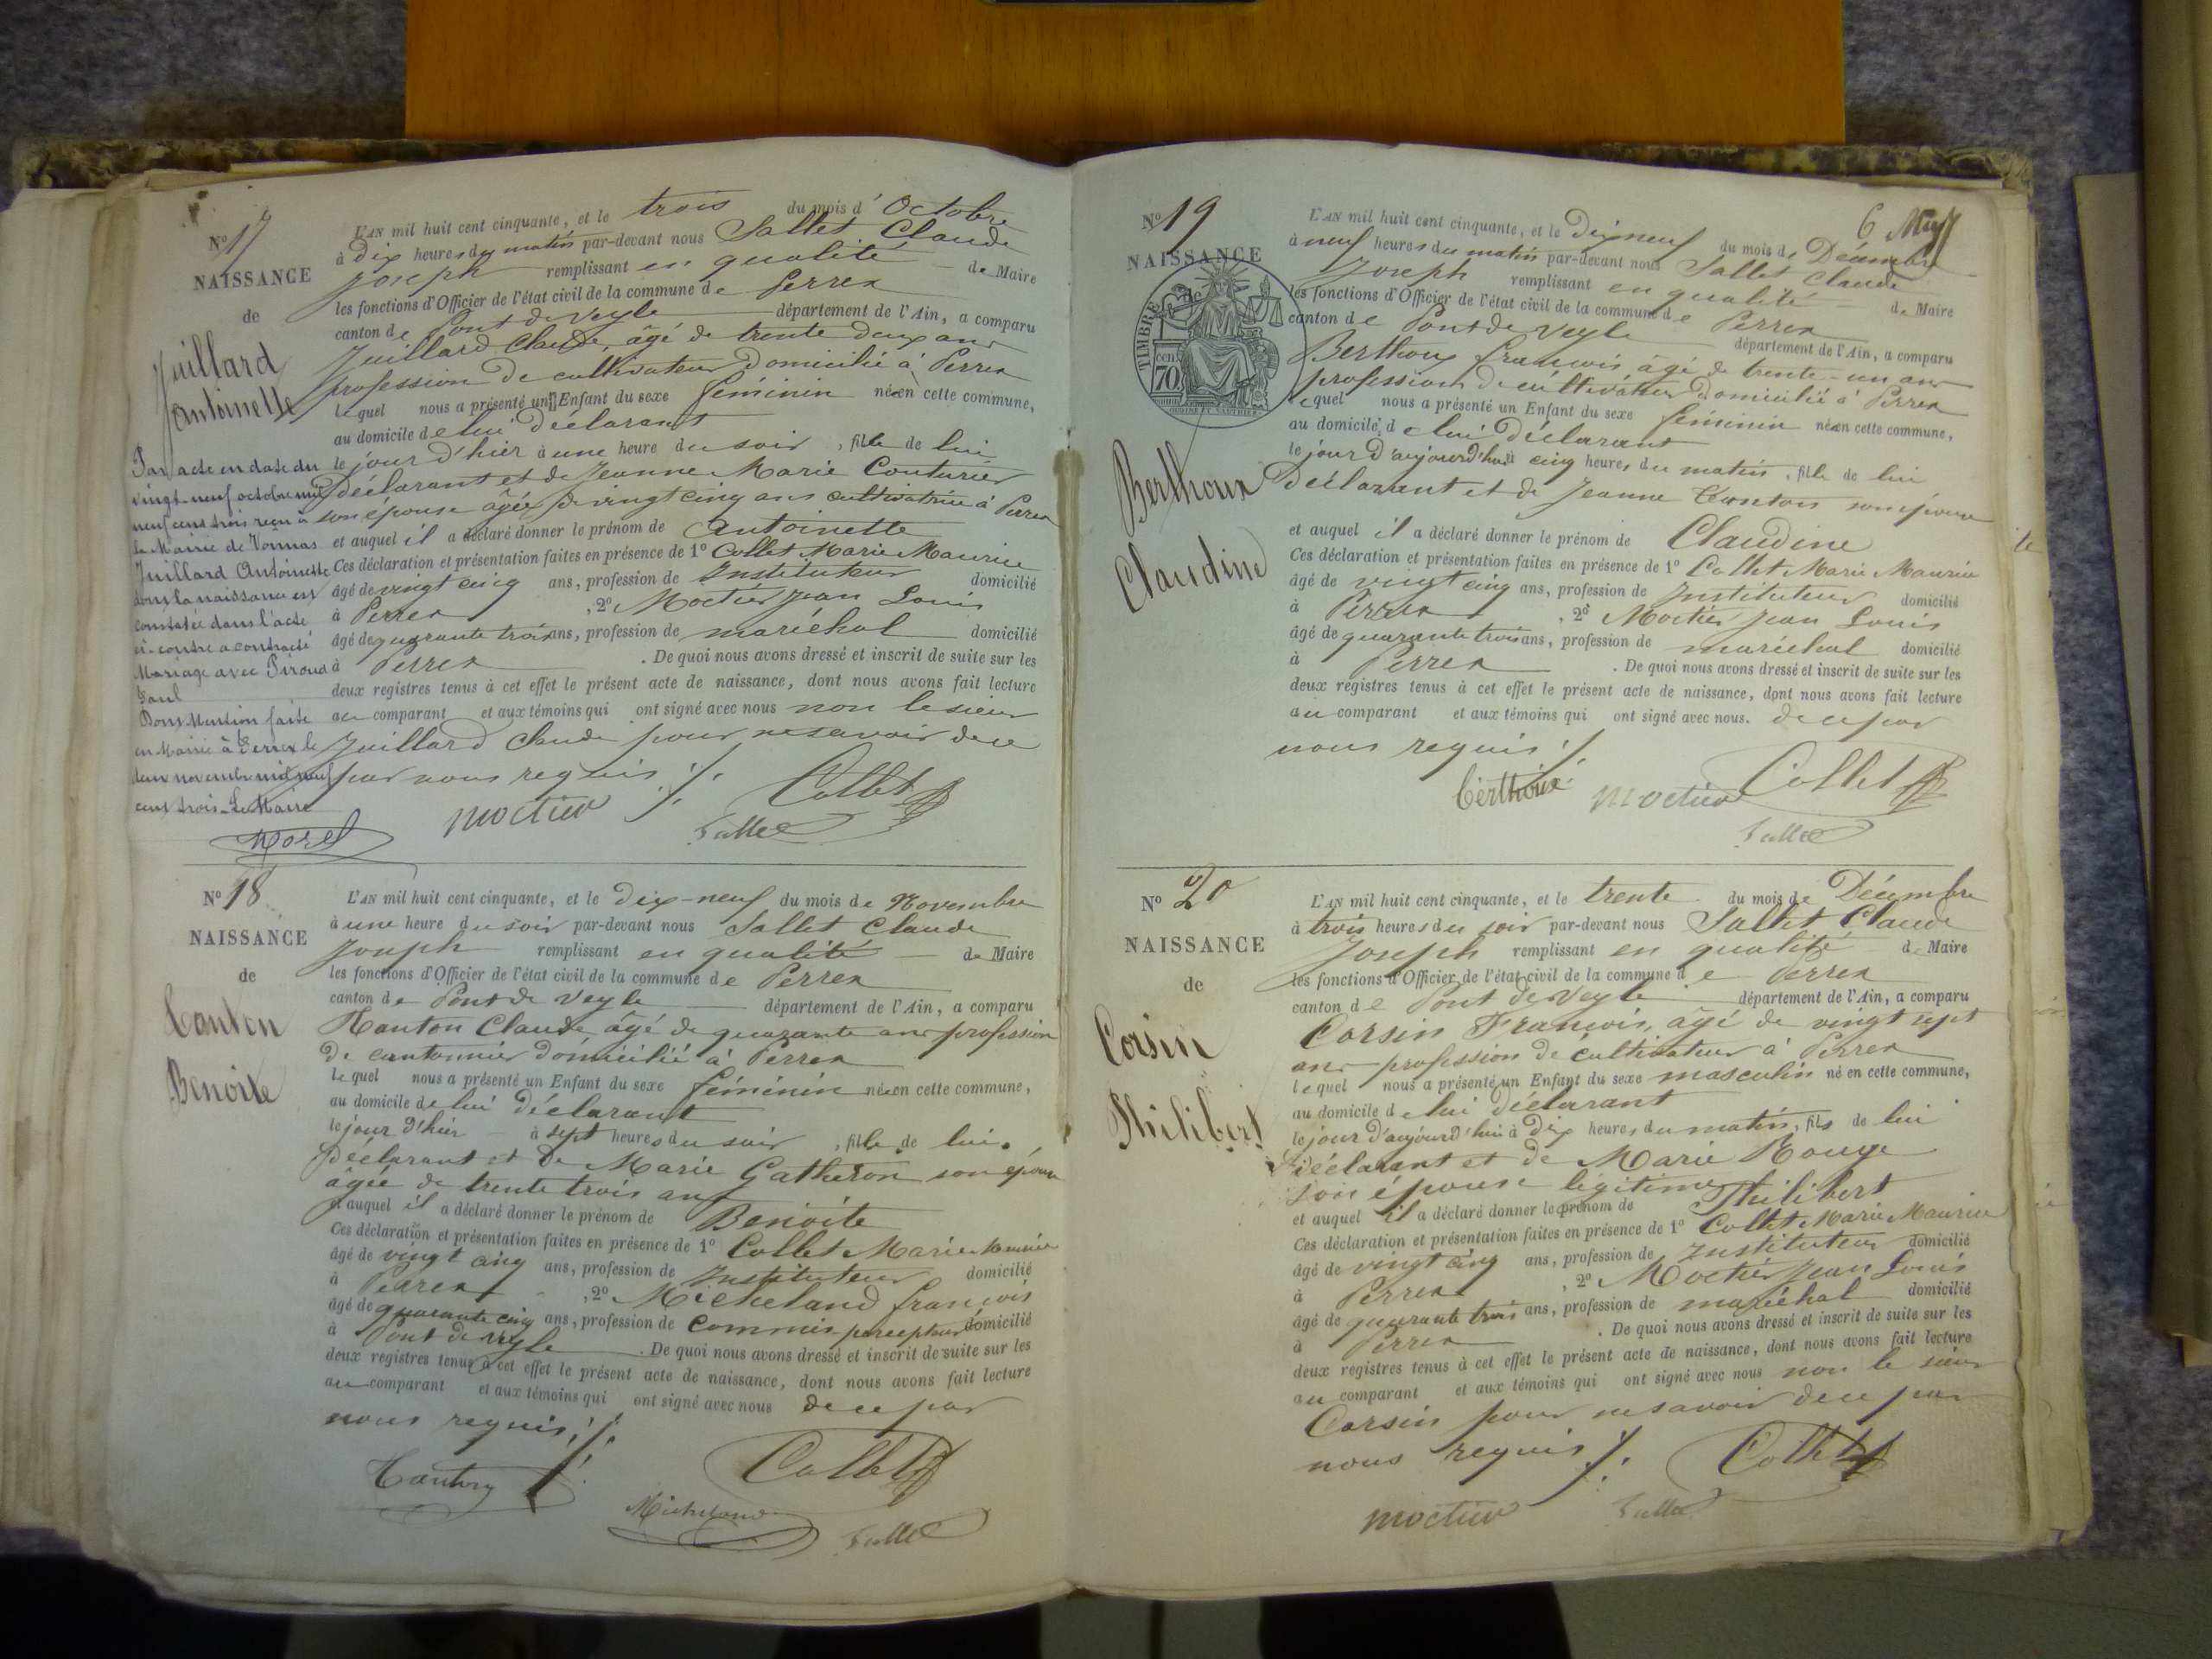 N° 17
NAISSANCE
de
Juillard
Antoinette
Par acte en date du
vingt-neuf octobre mil
neuf cent trois reçu à
la Mairie de Vonnas
Juillard Antoinette
dont la naissance est
constatée dans l'acte
ci-contre a contracté
Mariage avec Piroud
Paul
Dont Mention faite
en Mairie à Perrex le
deux novembre mil neuf
cent trois. Le Maire
Morel
L'AN mil huit cent cinquante, et le trois du mois d'Octobre
à Dix heures du matin par-devant nous Sallet Claude
Joseph remplissant en qualité de Maire
les fonctions d'Officier de l'état civil de la commune de Perrex
canton de Pont de Veyle département de l'Ain, a comparu
Juillard Claude, âgé de trente deux ans
profession de cultivateur domicilié à Perrex
lequel nous a présenté un Enfant du sexe féminin née en cette commune,
au domicile de lui déclarant
le jour d'hier à une heure du soir, fille de lui
déclarant et de Jeanne Marie Couturier
son épouse âgée de vingt cinq ans cultivatrice à Perrex
et auquel il a déclaré donner le prénom de Antoinette
Ces déclaration et présentation faites en présence de 1° Collet Marie Maurice
âgé de vingt cinq ans, profession de Instituteur domicilié
à Perrex, 2° Moctier Jean Louis
âgé de quarante trois ans, profession de maréchal domicilié
à Perrex. De quoi nous avons dressé et inscrit de suite sur les
deux registres tenus à cet effet le présent acte de naissance, dont nous avons fait lecture
au comparant et aux témoins qui ont signé avec nous non le sieur
Juillard Claude pour ne savoir de ce
par nous requis ./.
Moctier Collet
Sallet
N° 18
NAISSANCE
de
Canton
Benoite
L'AN mil huit cent cinquante, et le dix-neuf du mois de Novembre
à une heure du soir par-devant nous Sallet Claude
Joseph remplissant en qualité de Maire
les fonctions d'Officier de l'état civil de la commune de Perrex
canton de Pont de Veyle département de l'Ain, a comparu
Canton Claude âgé de quarante ans profession
de cantonnier domicilié à Perrex
lequel nous a présenté un Enfant du sexe féminin née en cette commune,
au domicile de lui déclarant
le jour d'hier à sept heures du soir, fille de lui
Déclarant et de Marie Gatheron son épouse
âgée de trente trois ans
et auquel il a déclaré donner le prénom de Benoite
Ces déclaration et présentation faites en présence de 1° Collet Marie Maurice
âgé de vingt cinq ans, profession de Instituteur domicilié
à Perrex, 2° Micheland françois
âgé de quarante cinq ans, profession de commis percepteur domicilié
à Pont de veyle. De quoi nous avons dressé et inscrit de suite sur les
deux registres tenus à cet effet le présent acte de naissance, dont nous avons fait lecture
au comparant et aux témoins qui ont signé avec nous de ce par
nous requis ./.
Canton Collet
Micheland Sallet
6
N° 19
NAISSANCE
de
TIMBRE
cen. 70
Berthoux
Claudine
L'AN mil huit cent cinquante, et le Dix neuf du mois de Décembre
à neuf heures du matin par-devant nous Sallet Claude
Joseph remplissant en qualité de Maire
les fonctions d'Officier de l'état civil de la commune de Perrex
canton de Pont de Veyle département de l'Ain, a comparu
Berthoux françois, âgé de trente-un ans
profession de cultivateur domicilié à Perrex
lequel nous a présenté un Enfant du sexe féminin née en cette commune,
au domicile de lui Déclarant
le jour d'aujourd'hui à cinq heures du matin, fille de lui
Déclarant et de Jeanne Canton son épouse
et auquel il a déclaré donner le prénom de Claudine
Ces déclaration et présentation faites en présence de 1° Collet Marie Maurice
âgé de vingt cinq ans, profession de Instituteur domicilié
à Perrex, 2° Moctier Jean Louis
âgé de quarante trois ans, profession de maréchal domicilié
à Perrex. De quoi nous avons dressé et inscrit de suite sur les
deux registres tenus à cet effet le présent acte de naissance, dont nous avons fait lecture
au comparant et aux témoins qui ont signé avec nous. de ce par
nous requis ./.
Berthoux Moctier Collet
Sallet
N° 20
NAISSANCE
de
Corsin
Philibert
L'AN mil huit cent cinquante, et le trente du mois de Décembre
à trois heures du soir par-devant nous Sallet Claude
Joseph remplissant en qualité de Maire
les fonctions d'Officier de l'état civil de la commune de Perrex
canton de Pont de Veyle département de l'Ain, a comparu
Corsin François, âgé de vingt sept
ans profession de cultivateur à Perrex
lequel nous a présenté un Enfant du sexe masculin né en cette commune,
au domicile de lui déclarant
le jour d'aujourd'hui à dix heures du matin, fils de lui
déclarant et de Marie Rouge
son épouse légitime
et auquel il a déclaré donner le prénom de Philibert
Ces déclaration et présentation faites en présence de 1° Collet Marie Maurice
âgé de vingt cinq ans, profession de Instituteur domicilié
à Perrex, 2° Moctier Jean Louis
âgé de quarante trois ans, profession de maréchal domicilié
à Perrex. De quoi nous avons dressé et inscrit de suite sur les
deux registres tenus à cet effet le présent acte de naissance, dont nous avons fait lecture
au comparant et aux témoins qui ont signé avec nous non le sieur
Corsin pour ne savoir de ce par
nous requis ./.
Moctier Sallet Collet